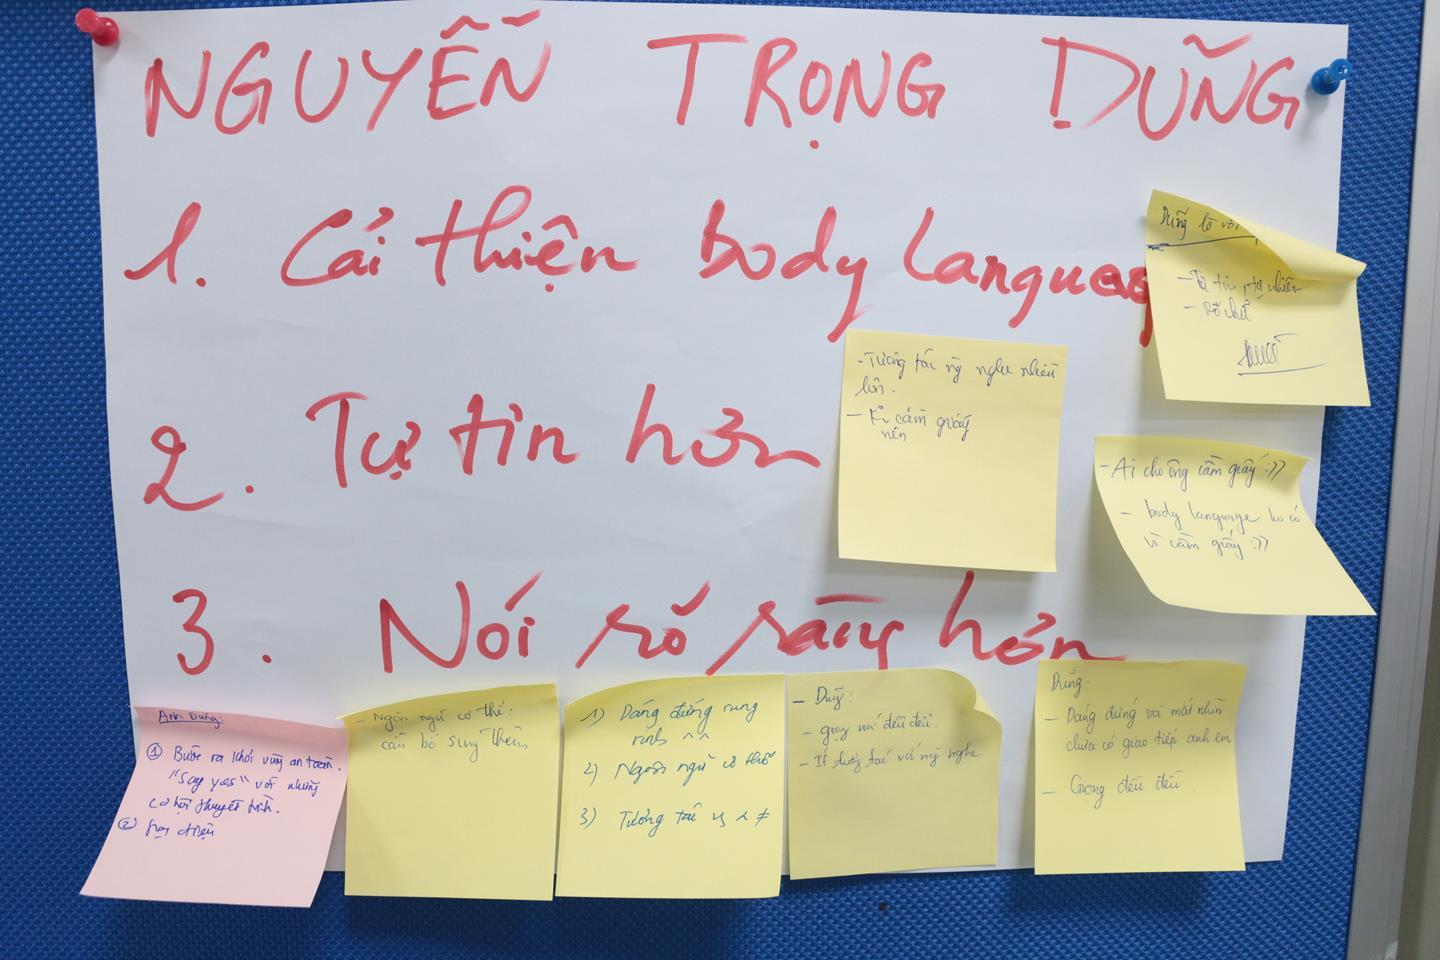 NGUYỄN TRỌNG DŨNG
1. Cải thiện body language
2. Tự tin hơn
3. Nói rõ ràng hơn
Dũng
- Tự tin, tự nhiên
- Rõ chữ
- Tương tác ng nghe nhiều
hơn.
- cầm giấy
nên
- Ai cho ông cầm giấy :))
- body language ko có
vì cầm giấy :))
Anh Dũng:
① Bước ra khỏi vùng an toàn.
"Say yes" với những
cơ hội thuyết trình.
②
- Ngôn ngữ cơ thể:
cần bổ sung thêm
1) Dáng đứng rung
rinh ^^
2) Ngôn ngữ cơ thể
3) Tương tác ≠
- Dũng:
- giọng nói đều đều.
- Ít tương tác với ng nghe
Dũng:
- Dáng đứng và mắt nhìn
chưa có giao tiếp anh em
- Giọng đều đều.